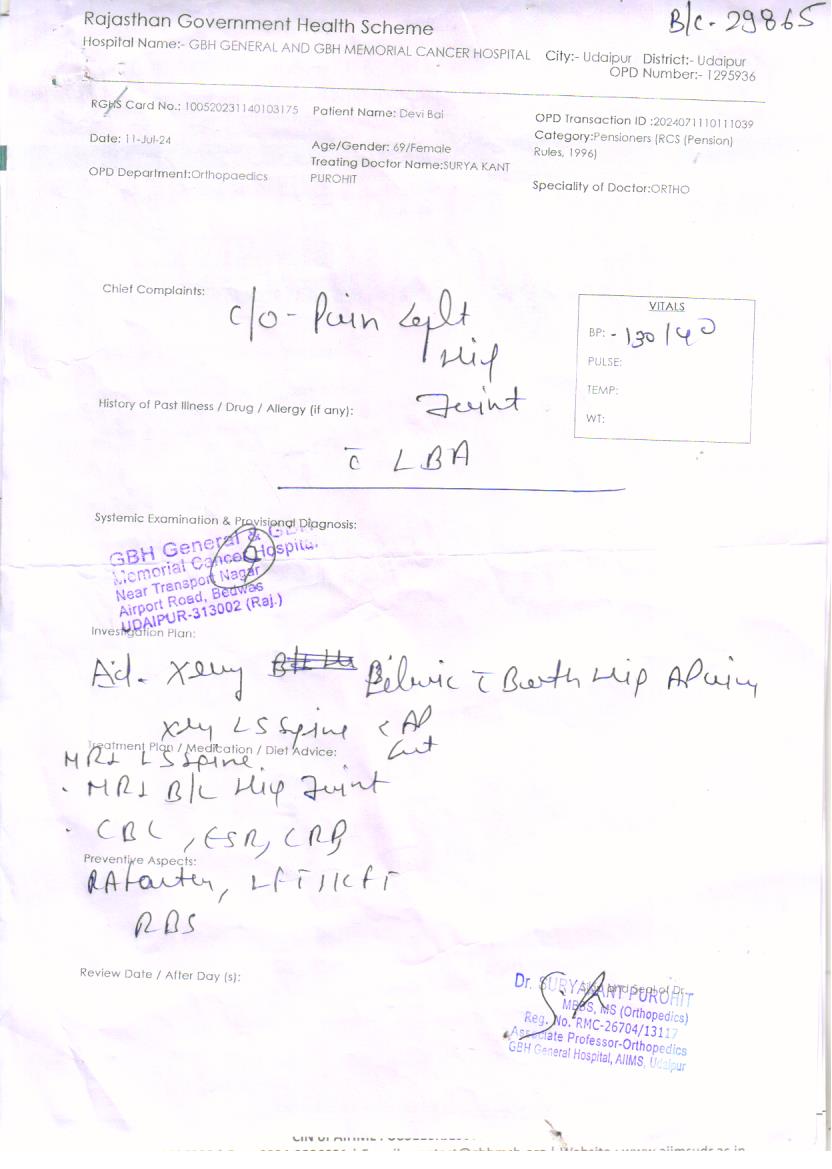 B/c - 29865
Rajasthan Government Health Scheme
Hospital Name:- GBH GENERAL AND GBH MEMORIAL CANCER HOSPITAL City:- Udaipur District:- Udaipur
OPD Number:- 1295936
RGHS Card No.: 100520231140103175 Patient Name: Devi Bai OPD Transaction ID :2024071110111039
Date: 11-Jul-24 Age/Gender: 69/Female Category:Pensioners (RCS (Pension)
Rules, 1996)
OPD Department:Orthopaedics Treating Doctor Name:SURYA KANT
PUROHIT Speciality of Doctor:ORTHO
Chief Complaints:
c/o - Pain Left
Hip
Joint
VITALS
BP: - 130/90
PULSE:
TEMP:
WT:
History of Past Illness / Drug / Allergy (if any):
c̄ LBA
Systemic Examination & Provisional Diagnosis:
GBH General & GBH
Memorial Cancer Hospital
Near Transport Nagar
Airport Road, Bedwas
UDAIPUR-313002 (Raj.)
Investigation Plan:
Ad. Xray Pelvic c̄ Both Hip AP
Xray LS Spine < AP
Lat
Treatment Plan / Medication / Diet Advice:
MRI LS Spine.
. MRI B/L Hip Joint
. CBC, ESR, CRP,
Preventive Aspects:
RA factor, LFT / KFT
RBS
Review Date / After Day (s):
Sign and Seal of Dr.
Dr. SURYAKANT PUROHIT
MBBS, MS (Orthopedics)
Reg. No. RMC-26704/13117
Associate Professor-Orthopedics
GBH General Hospital, AIIMS, Udaipur